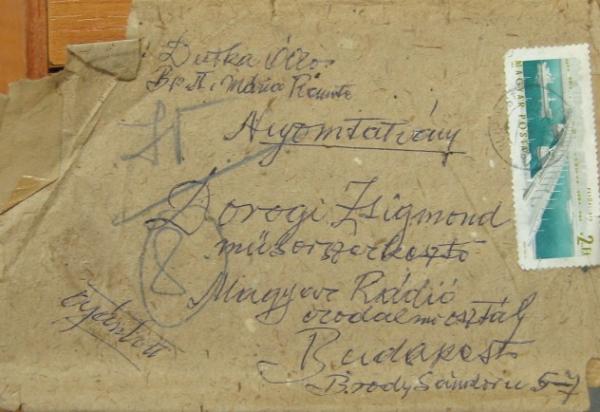 Dutka Ákos
Bp. II. Mária Rámte
Nyomtatvány
Dorogi Zsigmond
műsorszerkesztő
Magyar Rádió
irodalmi osztály
Budapest
Bródy Sándor u 5-7
ajánlott
8
MAGYAR POSTA
2 Ft